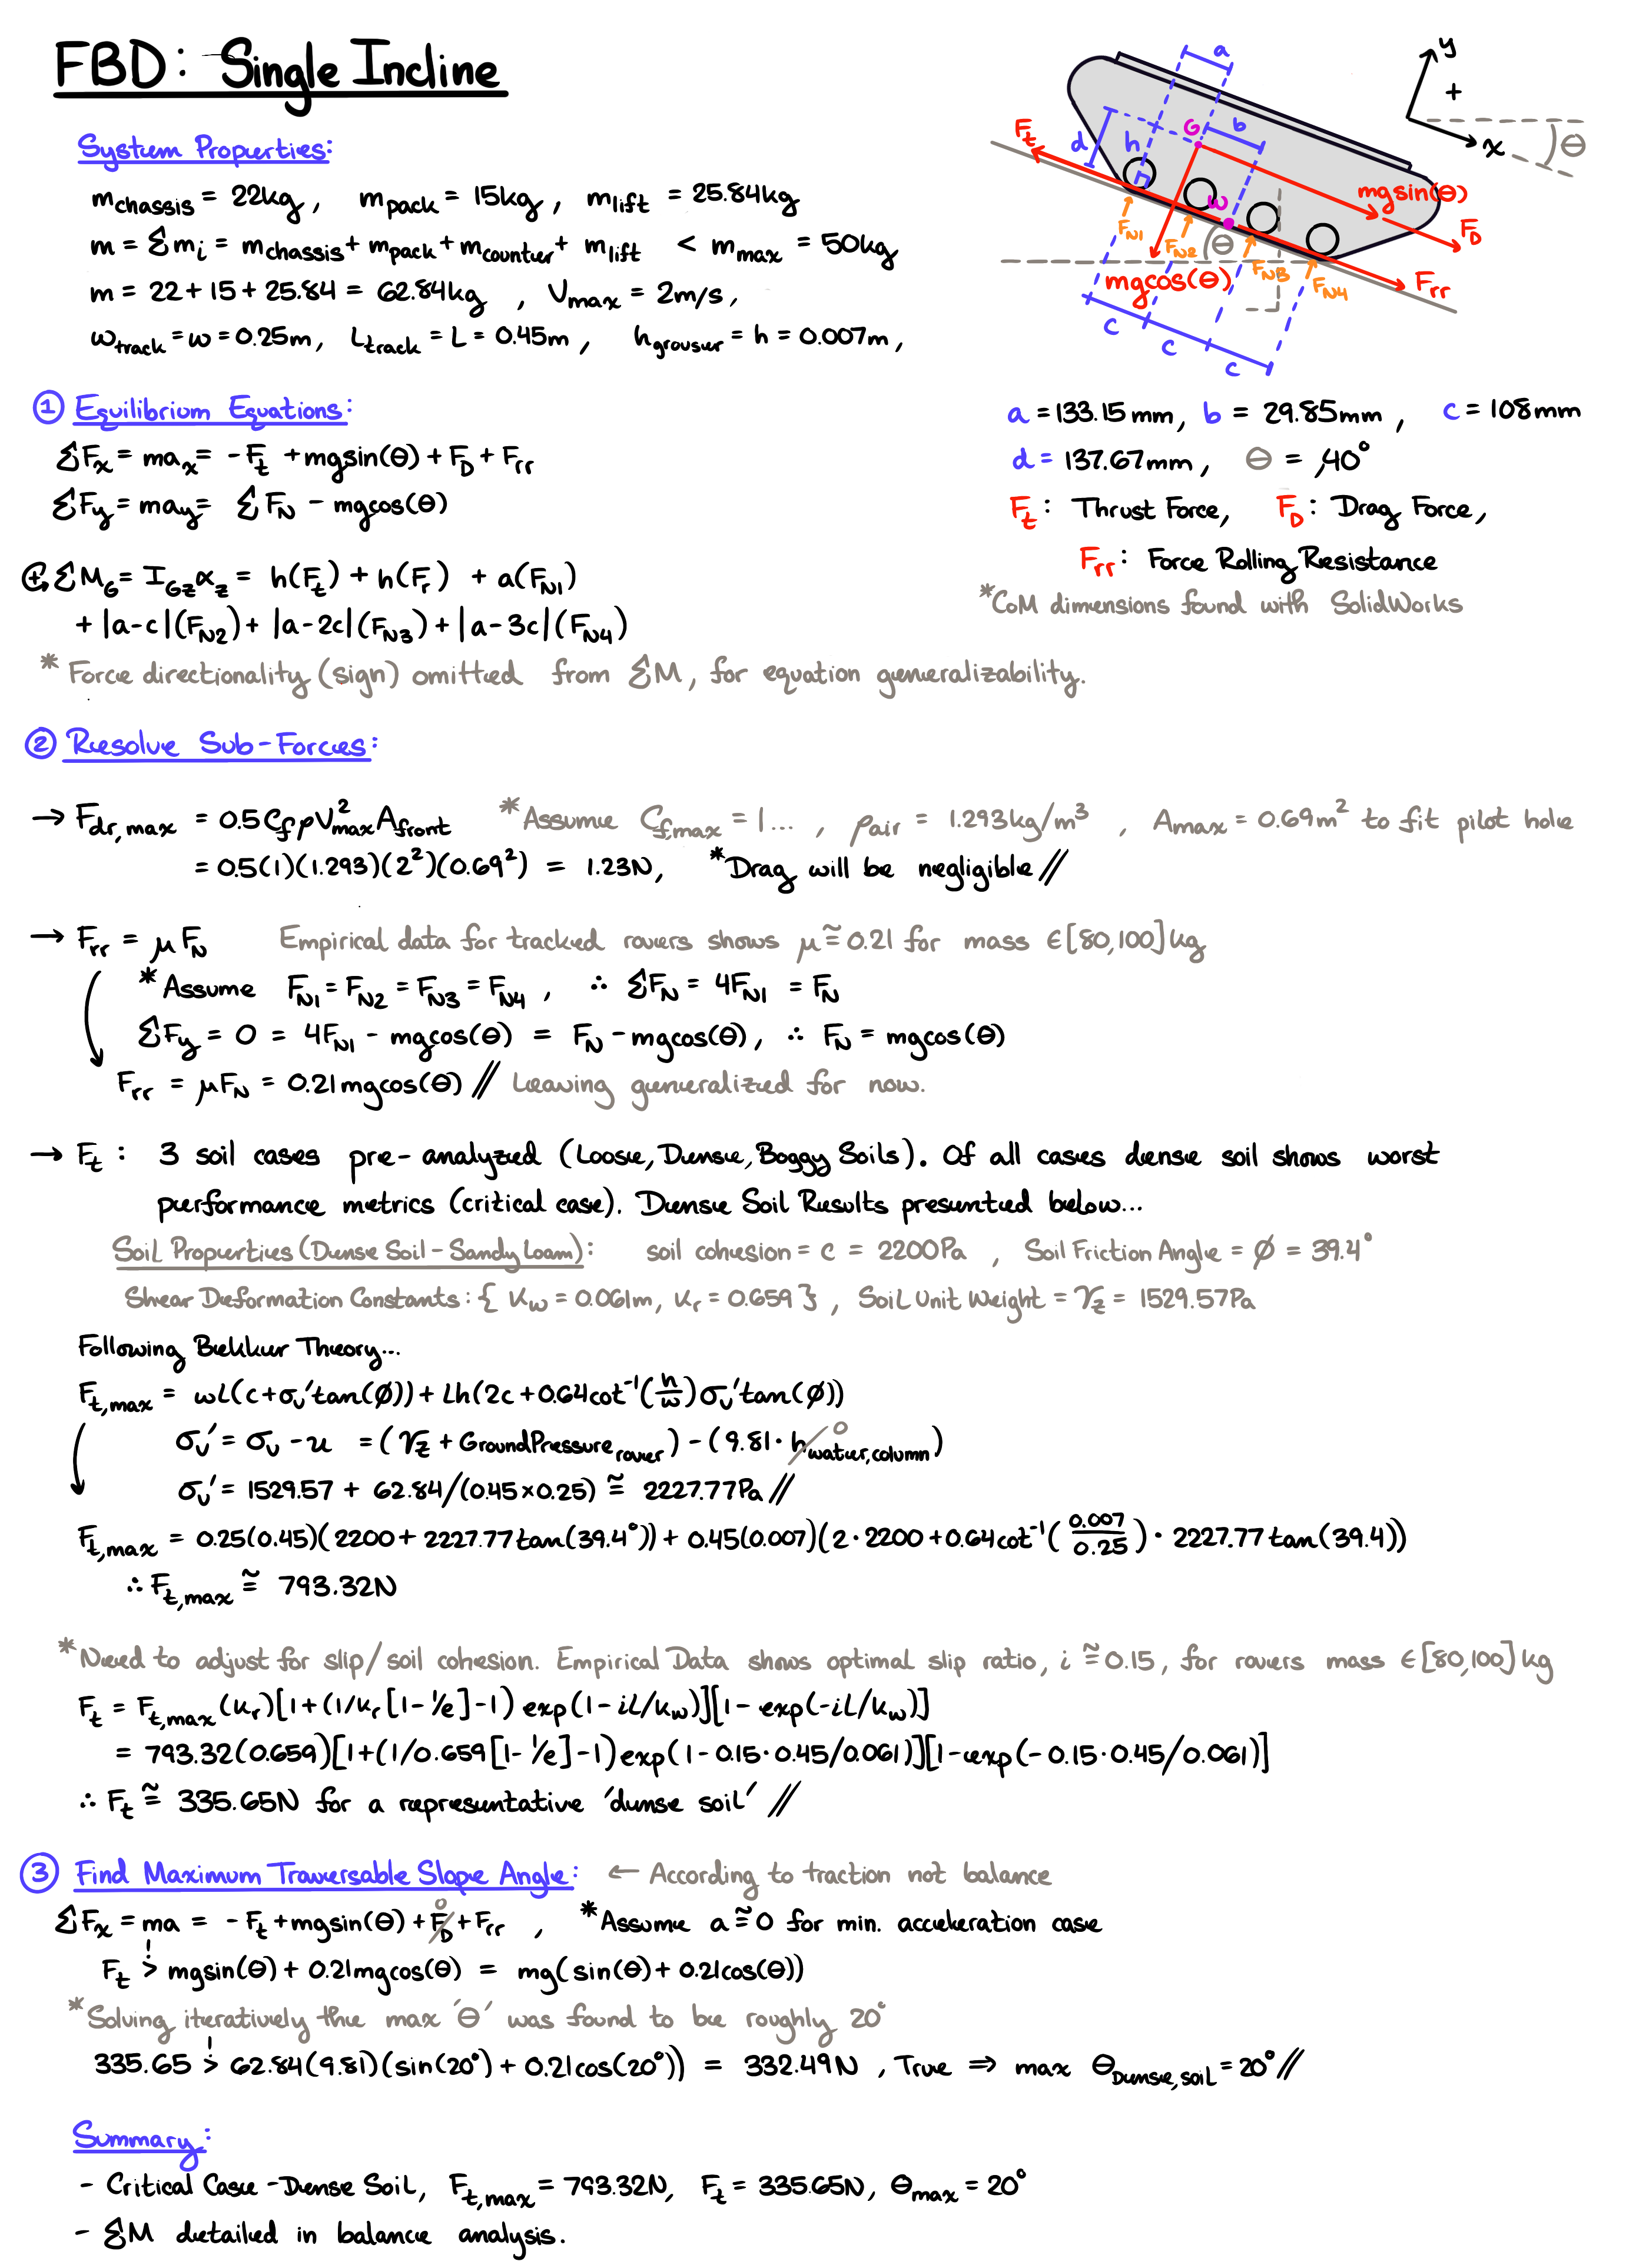 FBD: Single Incline
System Properties:
m_chassis = 22kg, m_pack = 15kg, m_lift = 25.84kg
m = Σm_i = m_chassis + m_pack + m_counter + m_lift < m_max = 50kg
m = 22+15+25.84 = 62.84kg , V_max = 2m/s,
w_track = w = 0.25m, L_track = L = 0.45m, h_grouser = h = 0.007m,
a
y
+
x
θ
G
b
d
h
F_t
w
mgsin(θ)
F_D
F_N1
F_N2
θ
F_N3
F_N4
mgcos(θ)
F_rr
c
c
c
a = 133.15mm, b = 29.85mm, c = 108mm
d = 137.67mm, θ = 40°
F_t: Thrust Force, F_D: Drag Force,
F_rr: Force Rolling Resistance
*CoM dimensions found with SolidWorks
① Equilibrium Equations:
ΣF_x = ma_x = -F_t + mgsin(θ) + F_D + F_rr
ΣF_y = ma_y = ΣF_N - mgcos(θ)
+ ΣM_G = I_Gz α_z = h(F_t) + h(F_r) + a(F_N1)
+ |a-c|(F_N2) + |a-2c|(F_N3) + |a-3c|(F_N4)
* Force directionality (sign) omitted from ΣM, for equation generalizability.
② Resolve Sub-Forces:
→ F_dr,max = 0.5C_fρV²_max A_front *Assume C_f,max = 1... , ρ_air = 1.293kg/m³ , A_max = 0.69m² to fit pilot hole
= 0.5(1)(1.293)(2²)(0.69²) = 1.23N, *Drag will be negligible //
→ F_rr = μF_N Empirical data for tracked rovers shows μ ≅ 0.21 for mass ∈[80,100]kg
*Assume F_N1 = F_N2 = F_N3 = F_N4 , ∴ ΣF_N = 4F_N1 = F_N
ΣF_y = 0 = 4F_N1 - mgcos(θ) = F_N - mgcos(θ), ∴ F_N = mgcos(θ)
F_rr = μF_N = 0.21mgcos(θ) // Leaving generalized for now.
→ F_t : 3 soil cases pre-analyzed (Loose, Dense, Boggy Soils). Of all cases dense soil shows worst
performance metrics (critical case). Dense Soil Results presented below...
Soil Properties (Dense Soil - Sandy Loam): soil cohesion = c = 2200Pa , Soil Friction Angle = φ = 39.4°
Shear Deformation Constants: { K_w = 0.061m, K_r = 0.659 } , Soil Unit Weight = γ_z = 1529.57Pa
Following Bekker Theory...
F_t,max = wL(c+σ_v'tan(φ)) + Lh(2c+0.64cot⁻¹(h/w)σ_v'tan(φ))
σ_v' = σ_v - u = (γ_z + GroundPressure_rover) - (9.81·h_water,column) 0
σ_v' = 1529.57 + 62.84/(0.45×0.25) ≅ 2227.77Pa //
F_t,max = 0.25(0.45)(2200 + 2227.77tan(39.4°)) + 0.45(0.007)(2·2200+0.64cot⁻¹(0.007/0.25)·2227.77tan(39.4))
∴ F_t,max ≅ 793.32N
*Need to adjust for slip/soil cohesion. Empirical Data shows optimal slip ratio, i ≅ 0.15, for rovers mass ∈[80,100]kg
F_t = F_t,max(K_r)[1+(1/K_r[1-1/e]-1)exp(1-iL/K_w)][1-exp(-iL/K_w)]
= 793.32(0.659)[1+(1/0.659[1-1/e]-1)exp(1-0.15·0.45/0.061)][1-exp(-0.15·0.45/0.061)]
∴ F_t ≅ 335.65N for a representative 'dense soil' //
③ Find Maximum Traversable Slope Angle: ← According to traction not balance
ΣF_x = ma = -F_t + mgsin(θ) + F_D 0 + F_rr , *Assume a ≅ 0 for min. acceleration case
F_t >! mgsin(θ) + 0.21mgcos(θ) = mg(sin(θ) + 0.21cos(θ))
*Solving iteratively the max 'θ' was found to be roughly 20°
335.65 >! 62.84(9.81)(sin(20°) + 0.21cos(20°)) = 332.49N , True ⇒ max θ_Dense,soil = 20° //
Summary:
- Critical Case - Dense Soil, F_t,max = 793.32N, F_t = 335.65N, θ_max = 20°
- ΣM detailed in balance analysis.